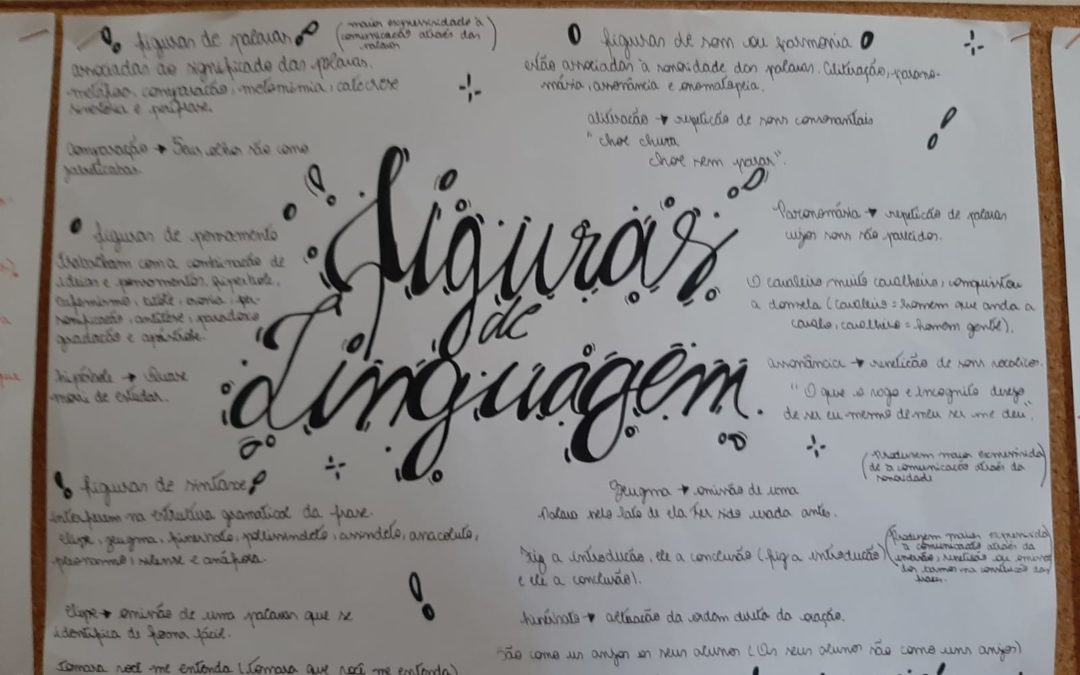 figuras de palavras
(maior expressividade à
comunicação através das
palavras)
associadas ao significado das palavras.
metáfora, comparação, metonímia, catacrese
sinestesia e perífrase.
comparação → Seus olhos são como
jabuticabas.
figuras de pensamento
trabalham com a combinação de
ideias e pensamentos, hipérbole,
eufemismo, litote, ironia, per-
sonificação, antítese, paradoxo
gradação e apóstrofe.
hipérbole → Quase
morri de estudar.
figuras de som ou harmonia
estão associadas à sonoridade das palavras. Aliteração, parono-
mária, assonância e onomatopeia.
aliteração → repetição de sons consonantais
"chove chuva
chove sem parar".
Figuras
de
Linguagem
Paronomária → repetição de palavras
cujos sons são parecidos.
O cavaleiro muito cavalheiro, conquistou
a donzela (cavaleiro = homem que anda a
cavalo, cavalheiro = homem gentil).
assonância → repetição de sons vocálicos.
"O que o vago e incognito desejo
de ser eu mesmo de meu ser me deu".
(Produzem maior expressivida
de a comunicação através da
sonoridade)
figuras de sintaxe
interferem na estrutura gramatical da frase.
elipse, zeugma, hipérbato, polissíndeto, assíndeto, anacoluto,
pleonasmo, silepse e anáfora.
elipse → omissão de uma palavra que se
identifica de forma fácil.
Tomara você me entenda (Tomara que você me entenda)
Zeugma → omissão de uma
palavra pelo fato de ela ter sido usada antes.
Fiz a introdução, ele a conclusão (fiz a introdução
e ele a conclusão).
(Produzem maior expressivida
a comunicação através da
inversão, repetição ou omissão
dos termos na construção das
frases.
hipérbato → alteração da ordem direta da oração.
São como uns anjos os seus alunos (Os seus alunos são como uns anjos)